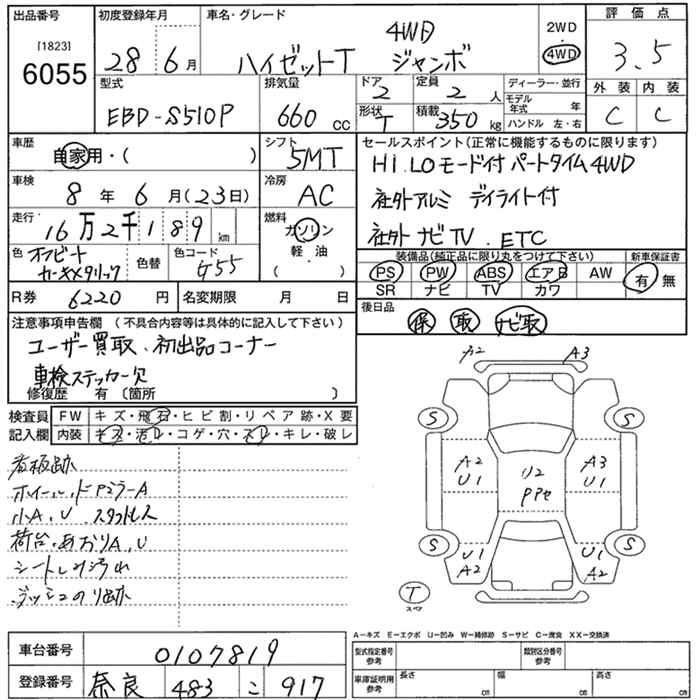 出品番号
[1823]
6055
初度登録年月
28年6月
車名・グレード
ハイゼットT 4WD ジャンボ
2WD
4WD
評価点
3.5
外装 内装
C C
型式
EBD-S510P
排気量
660 CC
ドア
2
定員
2 人
形状
T
積載
350 kg
ディーラー・並行
モデル年式 年
ハンドル 左・右
車歴
自家用・( )
シフト
5MT
車検
8年6月(23日)
冷房
AC
走行
16万2千189 km
燃料
ガソリン
軽油
( )
色
オフビートカーキメタリック
色替
色コード
G55
R券 6220 円
名変期限 月 日
セールスポイント(正常に機能するものに限ります)
HI.LOモード付 パートタイム4WD
社外アルミ デイライト付
社外ナビTV. ETC
装備品(純正品に限り丸をつけて下さい)
PS PW ABS エアB AW
SR ナビ TV カワ
新車保証書
有 無
後日品
保 取 ナビ取
注意事項申告欄 (不具合内容等は具体的に記入して下さい)
ユーザー買取、初出品コーナー
車検ステッカー欠
修復歴 有 〔箇所 〕
検査員記入欄
FW キズ・飛石・ヒビ割・リペア跡・X要
内装 キズ・汚レ・コゲ・穴・スレ・キレ・破レ
看板跡
小A、U スタットレス
荷台・あおりA、U
シートしみ汚れ
ダッシュのり跡
カ2 A3
S S
A2 U1
A3 U1
S S
U1 A2
U1 A2
T
スペア
A―キズ E―エクボ U―凹み W―補修跡 S―サビ C―腐食 XX―交換済
車台番号
0107819
登録番号
奈良 483 こ 917
型式指定番号 参考
類別区分番号 参考
車庫証明用 参考
長さ cm 幅 cm 高さ cm